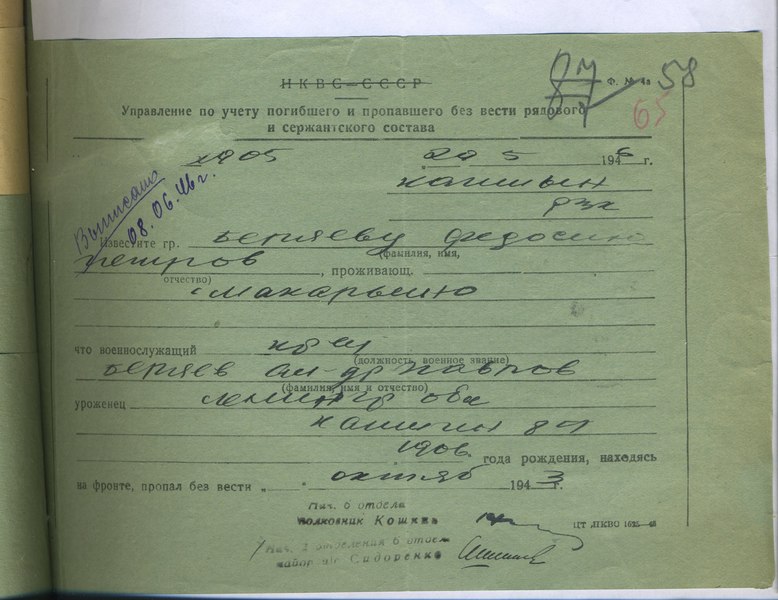 87 58
НКВС—СССР Ф. № 4а
65
Управление по учету погибшего и пропавшего без вести рядового
и сержантского состава
1905 29 5 1946 г.
Выписано
08.06.46 г.
Кашин
рвк
Известите гр. Беляеву Федосию
(фамилия, имя,
Петров , проживающ.
отчество)
Макарьино
что военнослужащий кр-ец
(должность, военное звание)
Беляев Ал-др Павлов
(фамилия, имя и отчество)
уроженец Ленингр обл
1906 года рождения, находясь
на фронте, пропал без вести „ " октяб 1943 г.
Нач. 6 отдела
полковник Кошкин
ЦТ ЛКВО
Нач. 1 отделения 6 отдела
майор а/с Сидоренко